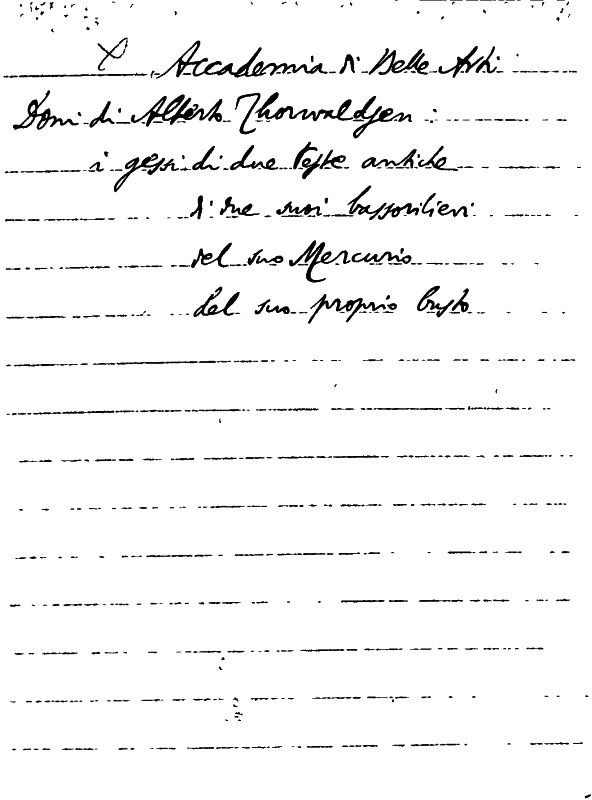 Accademia di Belle Arti
Doni di Alberto Thorwaldsen :
i gessi di due teste antiche
di due suoi bassorilievi
del suo Mercurio
del suo proprio busto